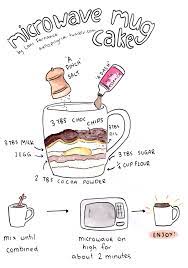 microwave mug
cake
A
"PINCH"
SALT
A
3 TBS CHOC
CHIPS
3 TBS MILK
1 EGG
3 TBS SUGAR
1/4 CUP FLOUR
2 TBS COCOA POWDER
mix until
combined
microwave on
high for
about 2 minutes
ENJOY!